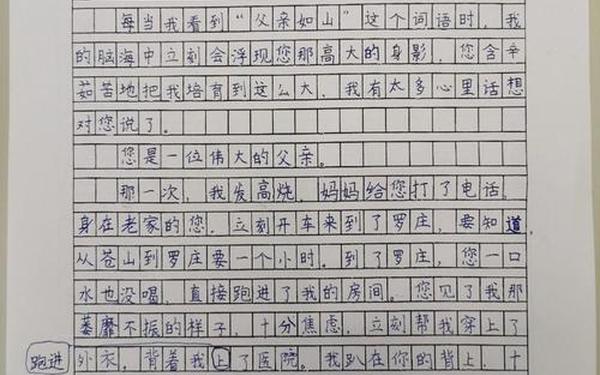 每当我看到“父亲如山”这个词语时，我
的脑海中立刻会浮现您那高大的身影，您含辛
茹苦地把我培育到这么大，我有太多心里话想
对您说了。
您是一位伟大的父亲。
那一次，我发高烧，妈妈给您打了电话。
身在老家的您，立刻开车来到了罗庄，要知道，
从苍山到罗庄要一个小时。到了罗庄，您一口
水也没喝，直接跑进了我的房间。您见了我那
萎靡不振的样子，十分焦虑，立刻帮我穿上了
外衣，背着我上了医院。我趴在你的背上，十
跑进